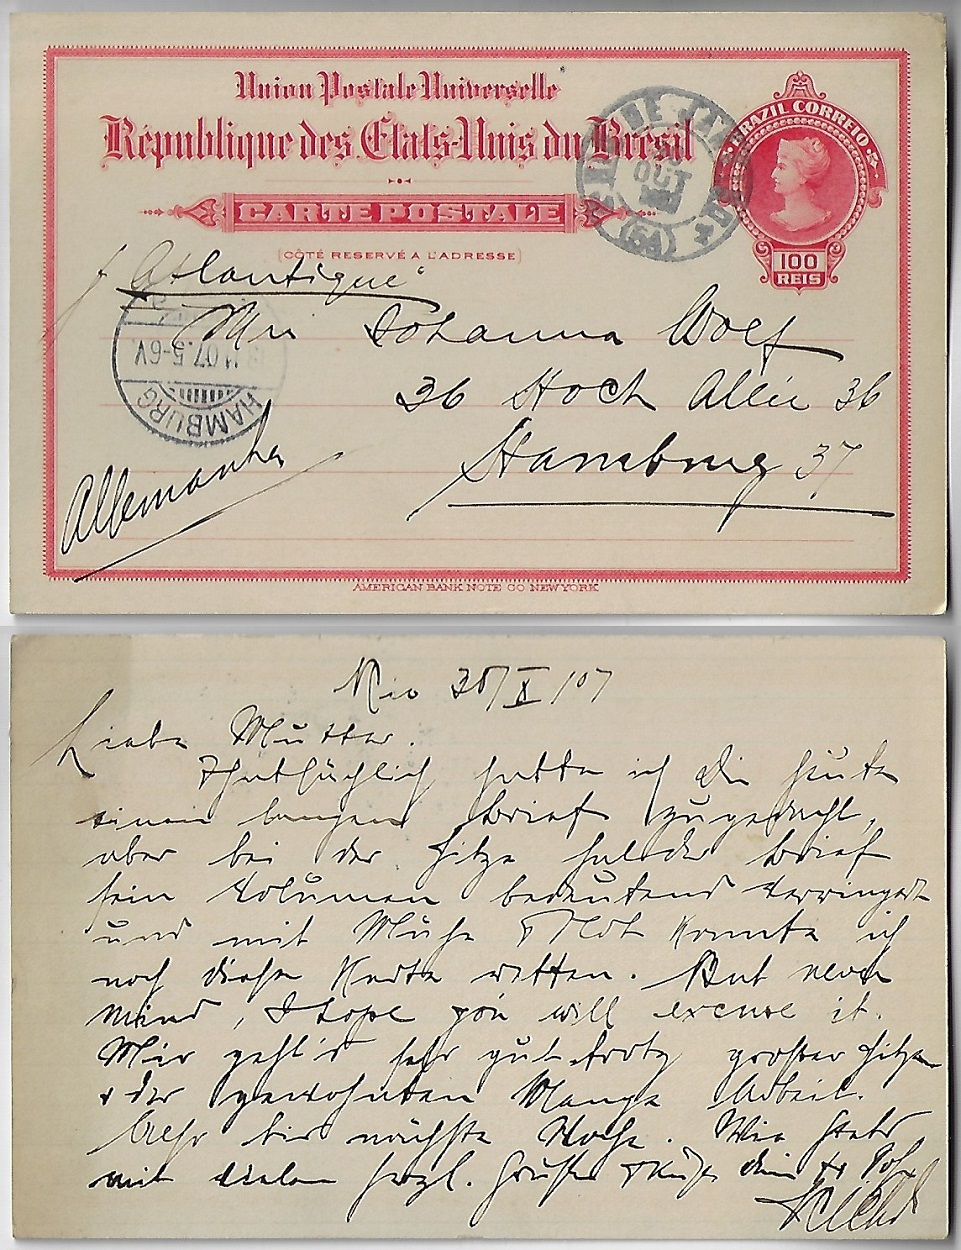 Union Postale Universelle
République des États-Unis du Brésil
CARTE POSTALE
(CÔTÉ RESERVÉ A L'ADRESSE)
BRAZIL CORREIO
100
REIS
RIO DE JANEIRO
OUT
(5A)
"Atlantique"
Johanna Wolf
36 Hoch Allee 36
Hamburg 37
Allemanha
HAMBURG
07.5-6V
AMERICAN BANK NOTE CO NEW YORK
Rio X/07
Liebe Mutter.
Thatsächlich hatte ich Dir heute
einen langen Brief zugedacht,
aber bei der Hitze hat der Brief
sein Volumen bedeutend verringert
und mit Mühe & Not konnte ich
noch diese Karte retten. But never
mind, I hope you will excuse it.
Mir geht's sehr gut trotz grosser Hitze
& der gewohnten Menge Arbeit.
Mehr bis nächste Woche. Wie stets
mit vielen herzl. Grüßen & Kuß dein tr